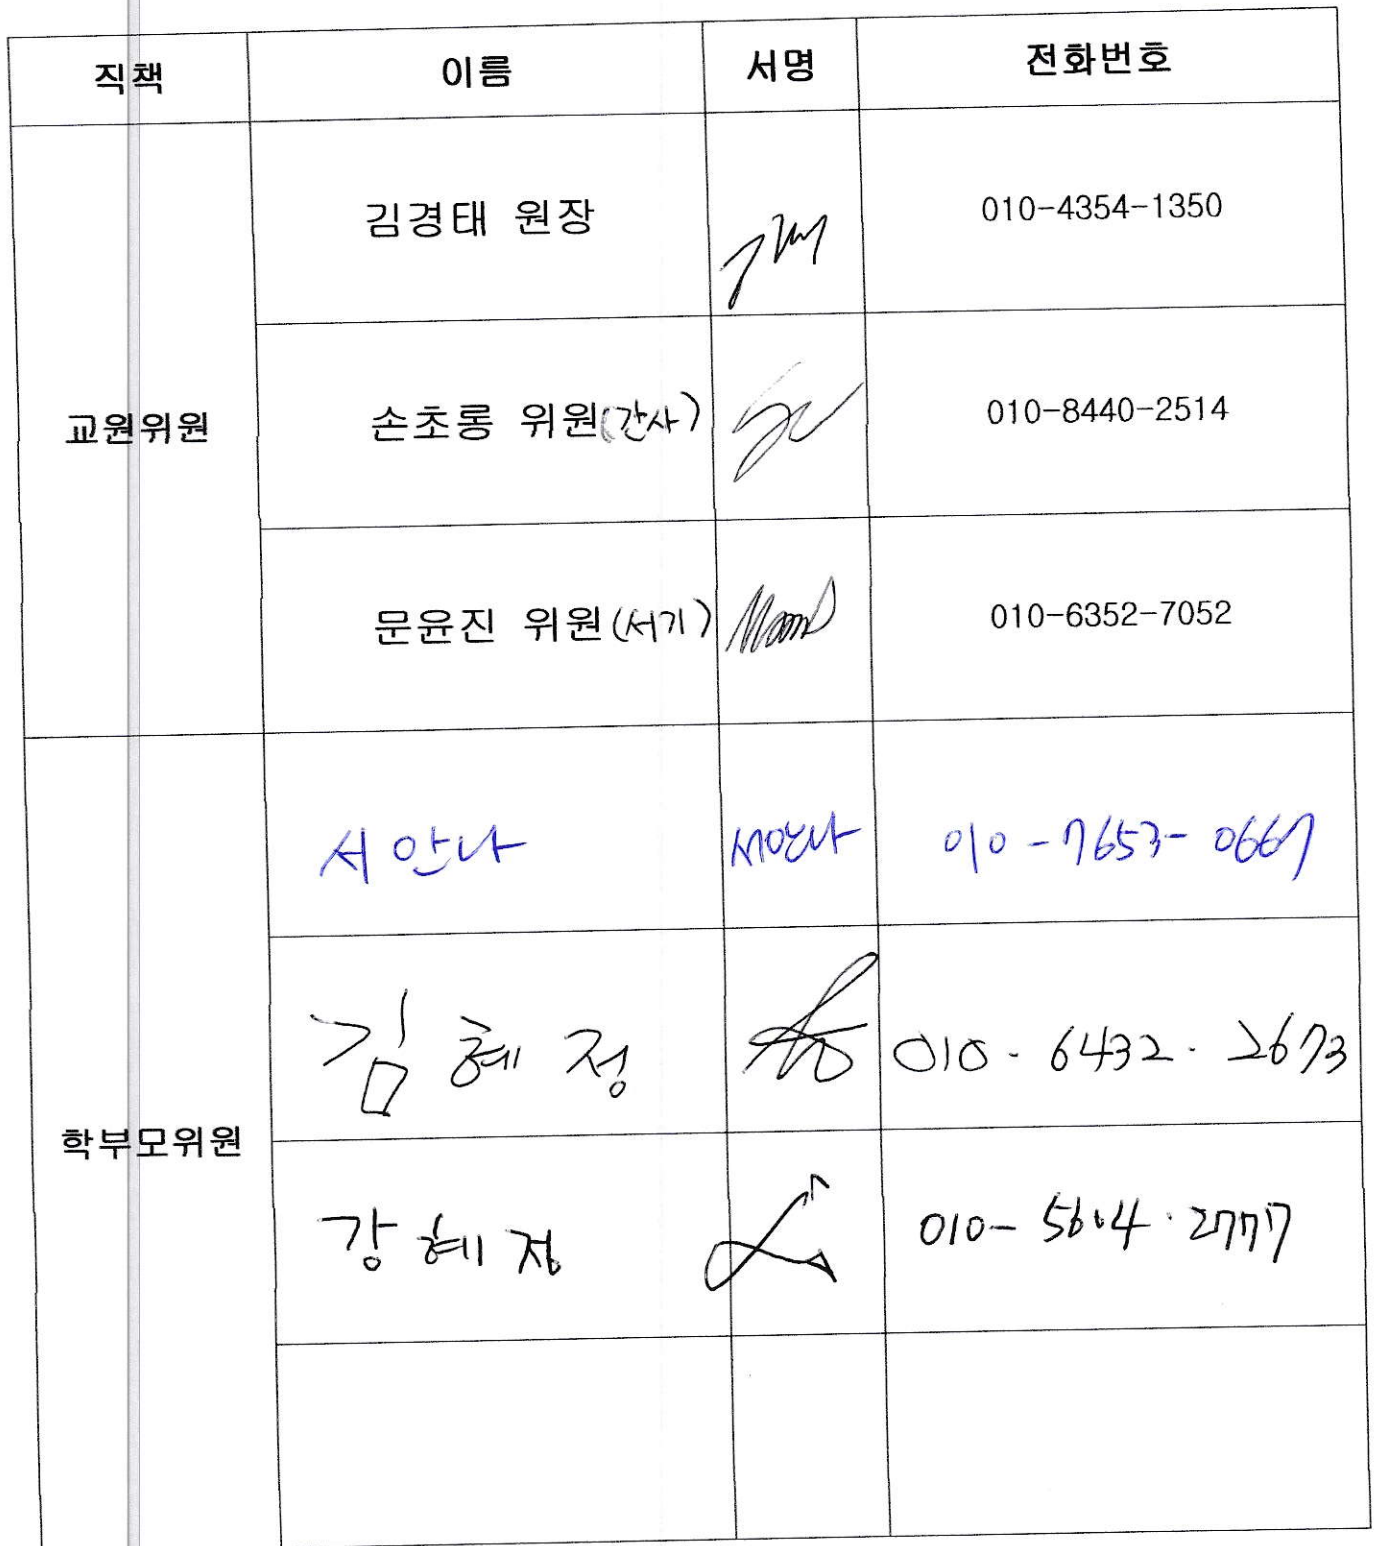 직책 이름 서명 전화번호
김경태 원장 010-4354-1350
교원위원 손초롱 위원(간사) 010-8440-2514
문윤진 위원(서기) 010-6352-7052
서안나 서안나 010-7653-0667
김혜정 010-6432-2673
학부모위원
강혜정 010-5604-2777